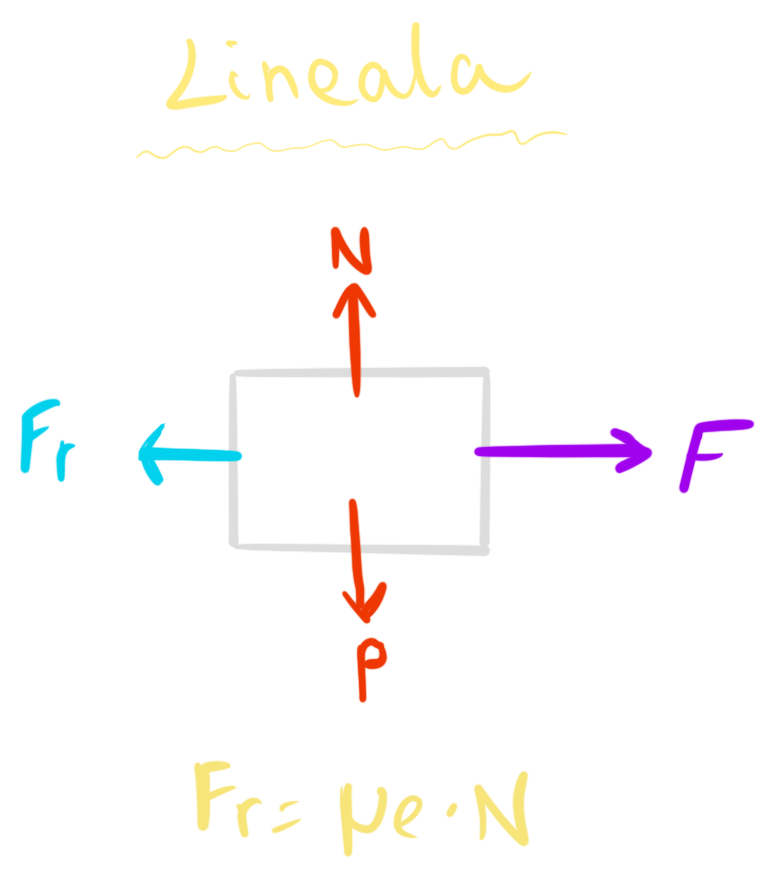 Lineala
N
Fr
F
P
Fr = μe · N